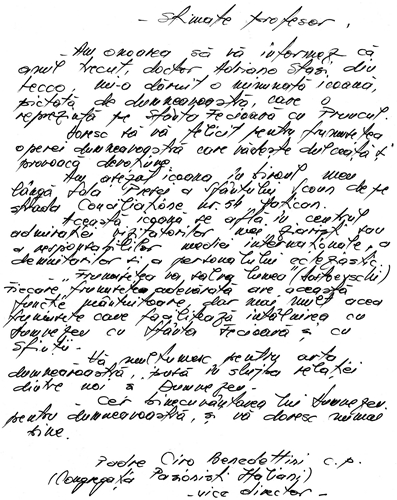 - Stimate profesor,
- Am onoarea să vă informez că
anul trecut, doctor Adriano Stasi, din
Lecco, mi-a dăruit o minunată icoană,
pictată de dumneavoastră, care o
reprezintă pe Sfânta Fecioară cu Pruncul.
Doresc să vă felicit pentru frumusețea
operei dumneavoastră care vădește dulceață și
provoacă devoțiune.
Am așezat icoana în biroul meu
lângă Sala Presei a Sfântului Scaun de pe
strada Conciliazione nr. 54 Vatican.
Această icoană se află în centrul
admirației vizitatorilor mei ziariști sau
a responsabililor mediei internaționale, a
demnitarilor și a personalului eclesiastic.
- "Frumusețea va salva lumea" (Dostoevschi)
Fiecare frumusețe adevărată are această
funcție mântuitoare, dar mai mult acea
frumusețe care facilitează întâlnirea cu
Dumnezeu cu Sfânta Fecioară și cu
Sfinții.
- Vă mulțumesc pentru arta
dumneavoastră, pusă în slujba relației
dintre noi și Dumnezeu.
- Cer binecuvântarea lui Dumnezeu
pentru dumneavoastră, și vă doresc numai
bine.
Padre Ciro Benedettini c.p.
(Congregația Pasioniști Italiani)
- vice director -